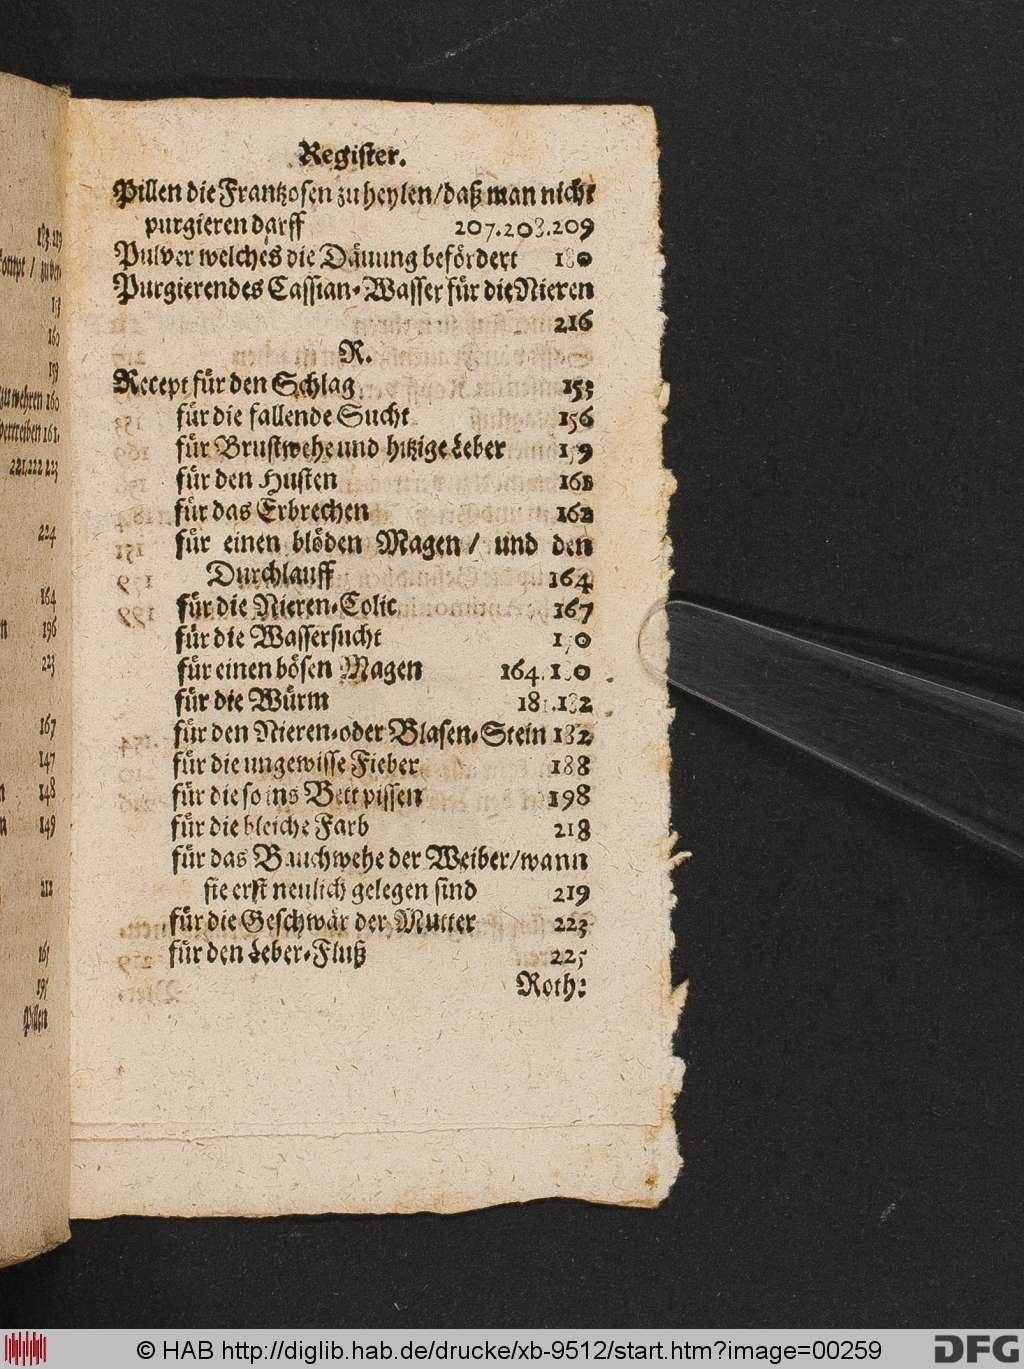 Register.
Pillen die Frantzosen zu heylen/daß man nicht
purgieren darff 207.208.209
Pulver welches die Däuung befördert 180
Purgierendes Cassian-Wasser für die Nieren
216
R.
Recept für den Schlag 153
für die fallende Sucht 156
für Brustwehe und hitzige Leber 159
für den Husten 161
für das Erbrechen 162
für einen blöden Magen / und den
Durchlauff 164
für die Nieren-Colic 167
für die Wassersucht 170
für einen bösen Magen 164.180
für die Würm 181.182
für den Nieren-oder Blasen-Stein 182
für die ungewisse Fieber 188
für die so ins Bett pissen 198
für die bleiche Farb 218
für das Bauchwehe der Weiber/wann
sie erst neulich gelegen sind 219
für die Geschwär der Mutter 223
für den Leber-Fluß 225
Roth:
160
zu wehren 160
vertreiben 161.
221.222 223
224
164
n 196
223
167
147
n 148
n 149
212
165
195
Pillen
© HAB http://diglib.hab.de/drucke/xb-9512/start.htm?image=00259
DFG